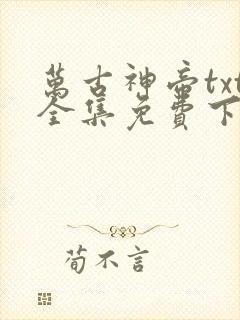 萬古神帝txt
全集免費下
荀不言